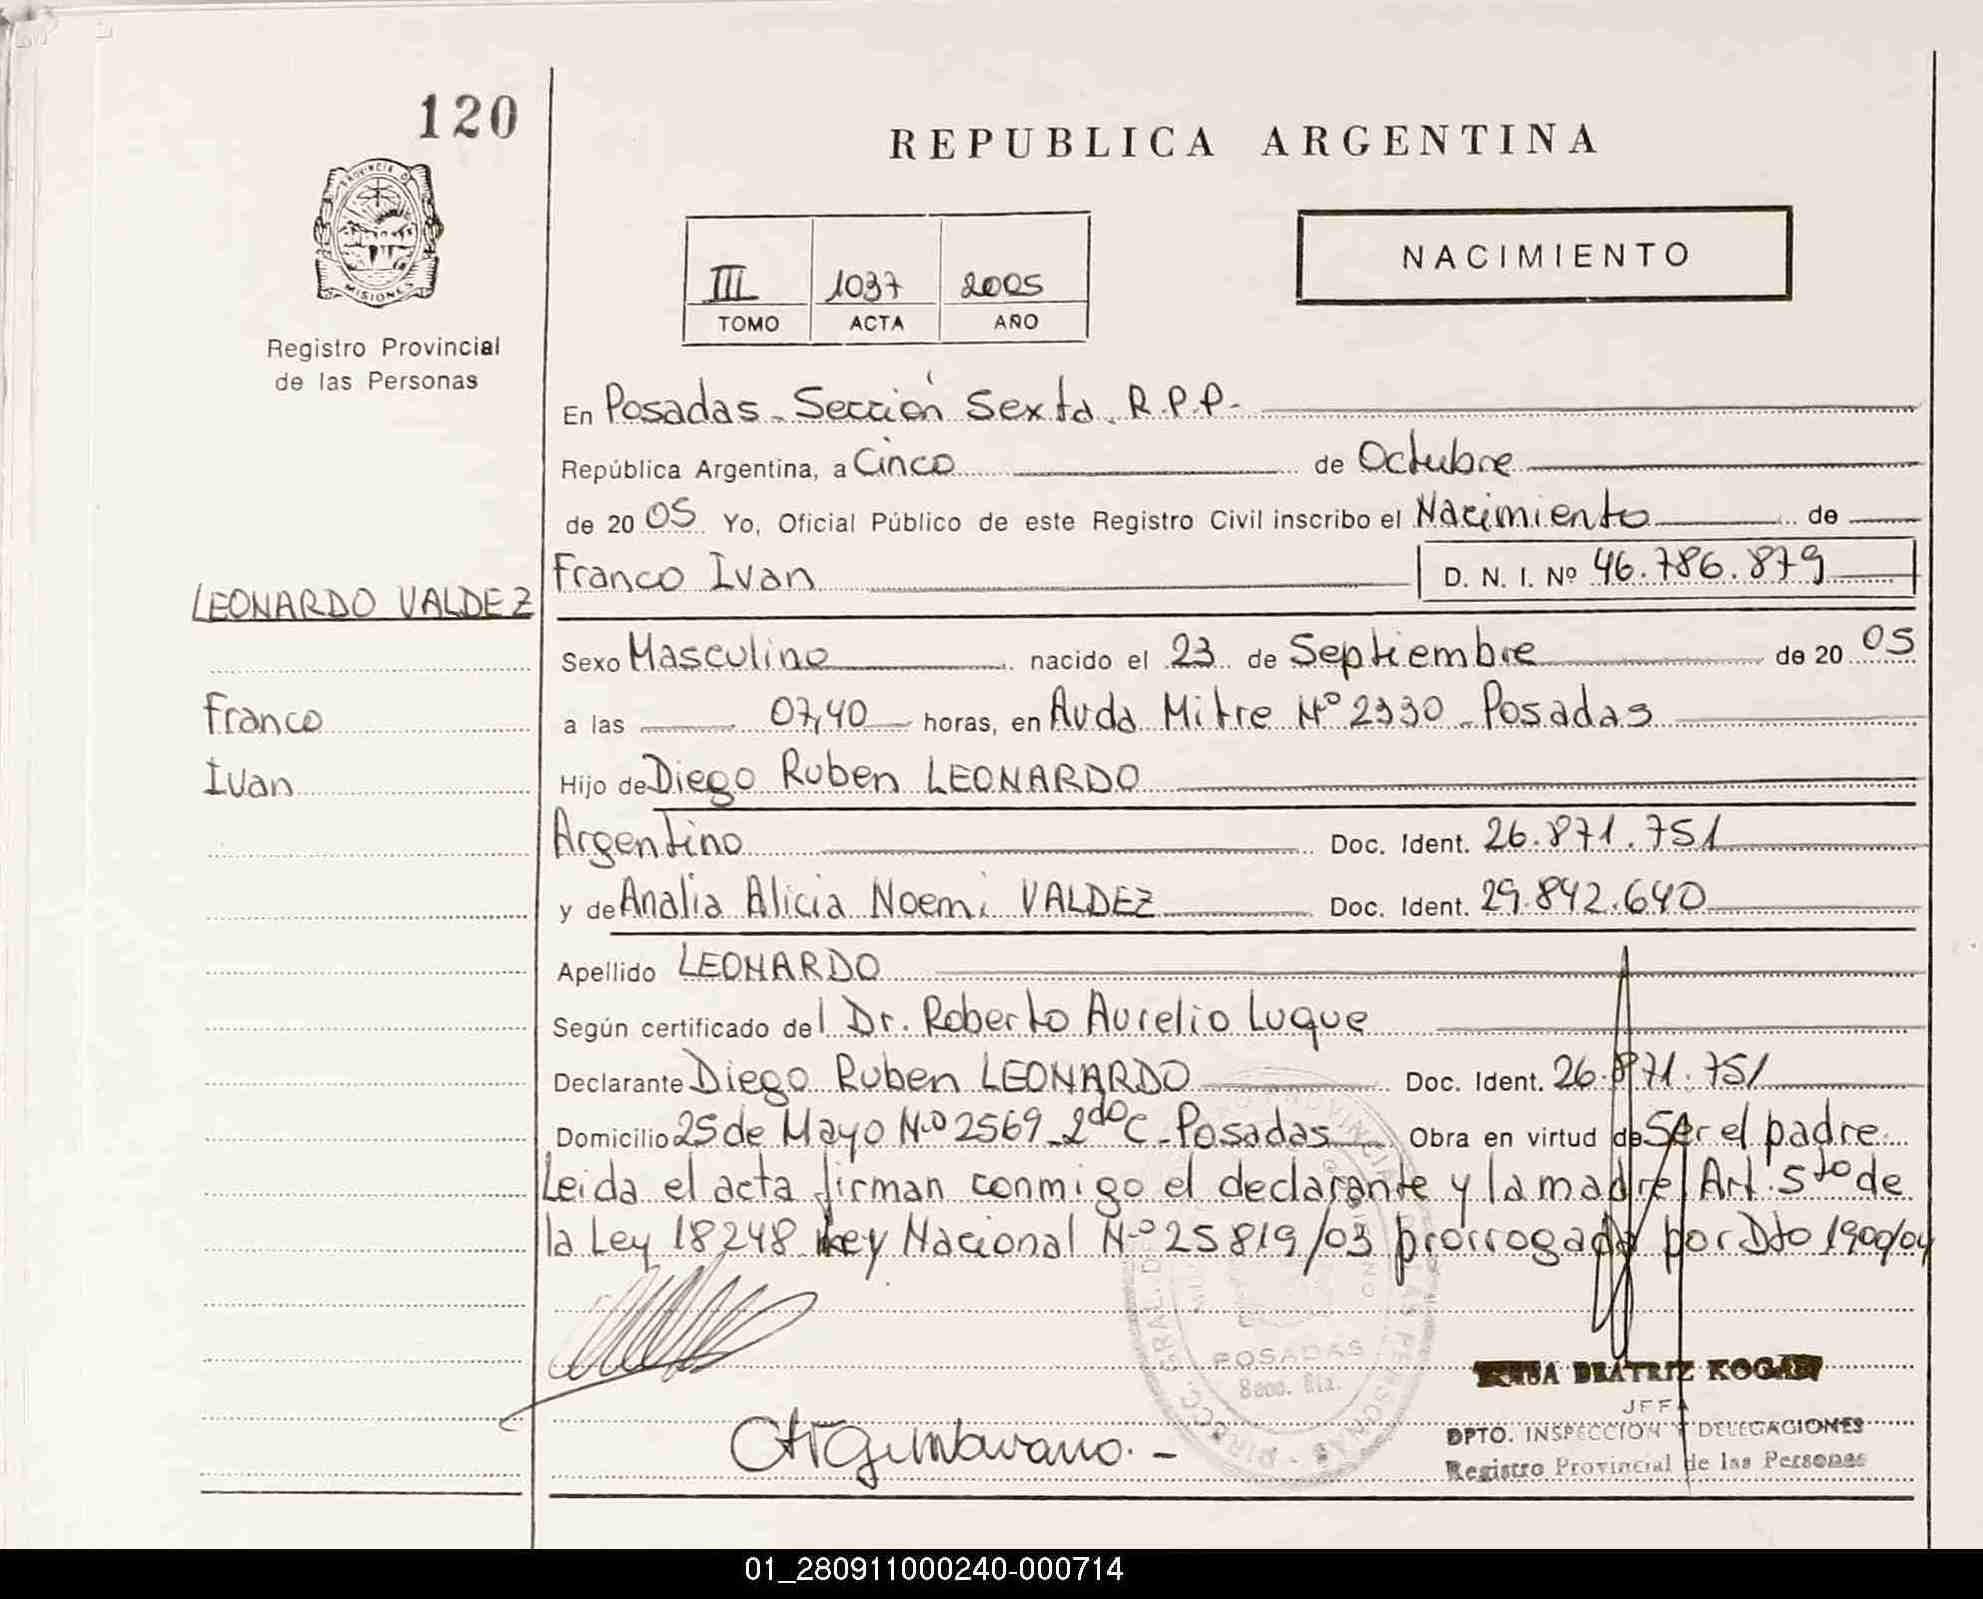 120
REPUBLICA ARGENTINA
PROVINCIA D MISIONES
NACIMIENTO
III 1037 2005
TOMO ACTA AÑO
Registro Provincial
de las Personas
En Posadas - Sección Sexta. R.P.P.-
República Argentina, a Cinco de Octubre
de 20 05 Yo, Oficial Público de este Registro Civil inscribo el Nacimiento de
Franco Ivan D. N. I. Nº 46.786.879
LEONARDO VALDEZ
Sexo Masculino nacido el 23 de Septiembre de 20 05
Franco
a las 07,40 horas, en Avda Mitre Nº 2330 - Posadas
Ivan
Hijo de Diego Ruben LEONARDO
Argentino Doc. Ident. 26.871.751
y de Analia Alicia Noemi VALDEZ Doc. Ident. 29.842.640
Apellido LEONARDO
Según certificado del Dr. Roberto Aurelio Luque
Declarante Diego Ruben LEONARDO Doc. Ident. 26.871.751
Domicilio 25 de Mayo Nº 2569 - 2do C - Posadas Obra en virtud de Ser el padre
Leida el acta firman conmigo el declarante y la madre Art. 5to de
la Ley 18248 Ley Nacional Nº 25819/03 prorrogada por Dto 1900/04
POSADAS
BEATRIZ KOGAN
JEFA
DPTO. INSPECCION Y DELEGACIONES
Registro Provincial de las Personas
01_280911000240-000714